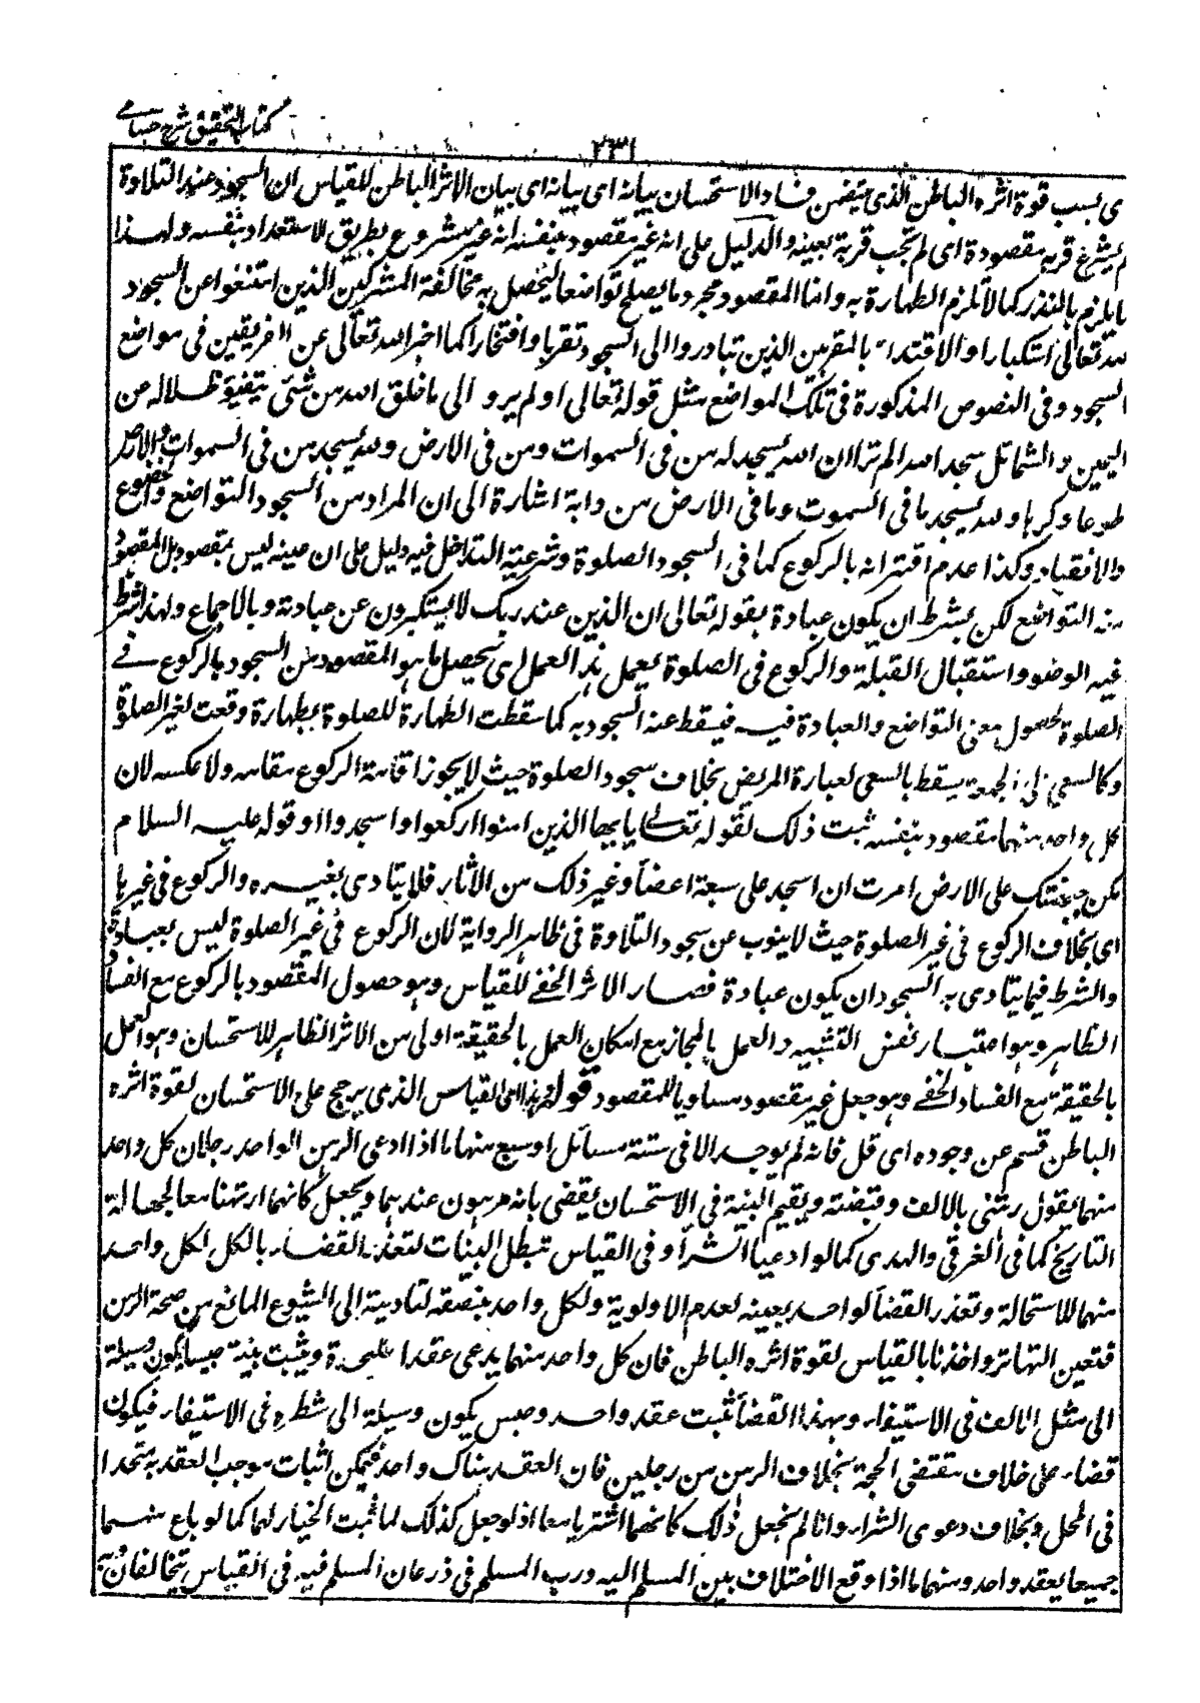 كتاب التحقيق شرح حسامي
٢٣١
ى بسبب قوة اثره الباطن الذى يتضمن فساد الاستحسان بيانه اى بيانه اى بيان الاثر الباطن للقياس ان السجود عند التلاوة
لم يشرع قربة مقصودة اى لم تجب قربة بعينه والدليل على انه غير مقصود بنفسه انه غير مشروع بطريق الاستقلال بنفسه ولهذا
لا يلزم بالنذر كما لا تلزم الطهارة به وانما المقصود مجرد ما يصلح تواضعا ليحصل به مخالفة المشركين الذين امتنعوا عن السجود
لله تعالى استكبارا والاقتداء بالمقربين الذين تبادروا الى السجود تقربا وافتخارا كما اخبر الله تعالى عن الفريقين فى مواضع
السجود وفى النصوص المذكورة فى تلك المواضع مثل قوله تعالى اولم يروا الى ما خلق الله من شئ يتفيؤ ظلاله عن
اليمين والشمائل سجدا لله الم تر ان الله يسجد له من فى السموات ومن فى الارض ولله يسجد من فى السموات والارض
طوعا وكرها ولله يسجد ما فى السموت وما فى الارض من دابة اشارة الى ان المراد من السجود التواضع والخضوع
والانقياد وكذا عدم اقترانه بالركوع كما فى السجود الصلوة وشرعية التداخل فيه دليل على ان عينه ليس بمقصود بل المقصود
منه التواضع لكن بشرط ان يكون عبادة بقوله تعالى ان الذين عند ربك لا يستكبرون عن عبادته وبالاجماع ولهذا شرط
فيه الوضو واستقبال القبلة والركوع فى الصلوة يعمل هذا العمل اى تحصيل ما هو المقصود من السجود بالركوع فى
الصلوة لحصول معنى التواضع والعبادة فيه فيسقط عنه السجود به كما سقطت الطهارة للصلوة بطهارة وقعت لغير الصلوة
وكالسعى الى الجمعة يسقط بالسعى لعبارة المريض بخلاف سجود الصلوة حيث لا يجوز اقامة الركوع مقامه ولا عكسه لان
كل واحد منهما مقصود بنفسه ثبت ذلك لقوله تعالى يايها الذين امنوا اركعوا واسجدوا وقوله عليه السلام
مكن جبهتك على الارض امرت ان اسجد على سبعة اعضاء وغير ذلك من الاثار فلا يتادى بغيره والركوع فى غيرها
اى بخلاف الركوع فى غير الصلوة حيث لا ينوب عن سجود التلاوة فى ظاهر الرواية لان الركوع فى غير الصلوة ليس بعبادة
والشرط فيما يتادى به السجود ان يكون عبادة فصار الاثر الخفى للقياس وهو حصول المقصود بالركوع مع الفساد
الظاهر وهو اعتبار نفس التشبيه والعمل بالمجاز مع امكان العمل بالحقيقة اولى من الاثر الظاهر للاستحسان وهو العمل
بالحقيقة مع الفساد الخفى وهو جعل غير مقصود مساويا للمقصود قوله وهذا اى القياس الذى يرجح على الاستحسان لقوة اثره
الباطن قسم عن وجوده اى قل فانه لم يوجد الا فى ستة مسائل او سبع منها ما اذا ادعى الرهن الواحد رجلان كل واحد
منهما يقول رهنتنى بالالف وقبضته ويقيم البينة فى الاستحسان يقضى بانه مرهون عندهما ويجعل كانهما ارتهنا معا لجهالة
التاريخ كما فى الغرقى والهدمى كما لو ادعيا الشراء وفى القياس تبطل البينات لتعذر القضاء بالكل لكل واحد
منهما للاستحالة وتعذر القضاء لواحد بعينه لعدم الاولوية ولكل واحد بنصفه لتاديته الى الشيوع المانع من صحة الرهن
فتعين التهاتر واخذنا بالقياس لقوة اثره الباطن فان كل واحد منهما يدعى عقدا عليحدة ويثبت بينة حبسا يكون وسيلة
الى مثل الالف فى الاستيفاء وبهذا القضاء ثبت عقد واحد وحبس يكون وسيلة الى شطره فى الاستيفاء فيكون
قضاء على خلاف مقتضى الحجة بخلاف الرهن من رجلين فان العقد هناك واحد فيمكن اثبات موجب العقد به متحدا
فى المحل وبخلاف دعوى الشراء وانا لم نجعل ذلك كانهما اشتريا معا اذ لو جعل كذلك لما ثبت الخيار لهما كما لو باع منهما
جميعا بعقد واحد ومنها ما اذا وقع الاختلاف بين المسلم اليه ورب المسلم فى ذرعان المسلم فيه فى القياس يتحالفان وبه